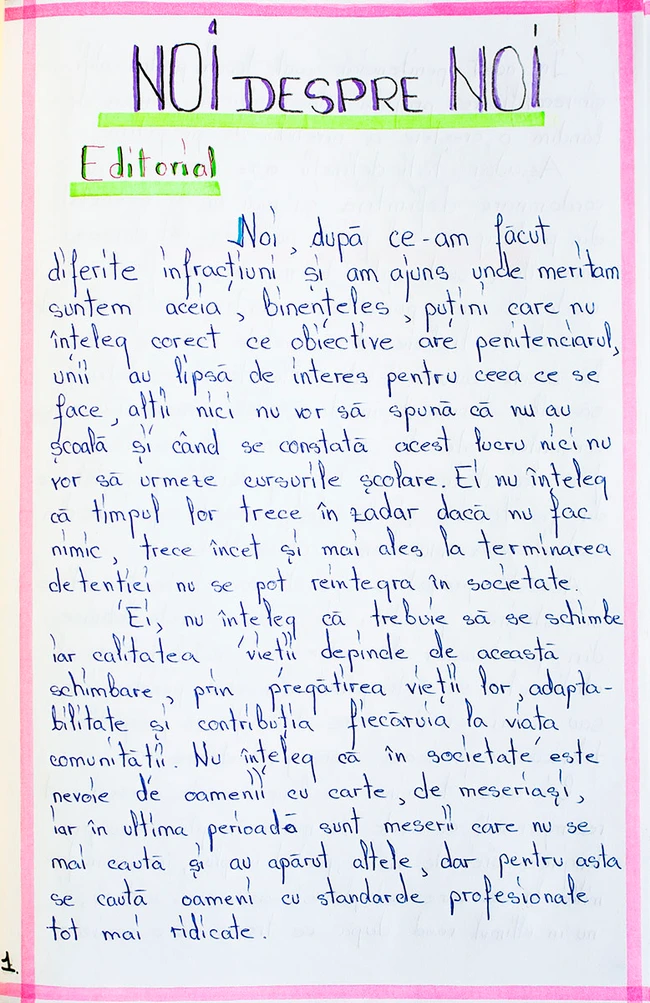 NOI DESPRE NOI
Editorial
Noi, după ce-am făcut
diferite infracțiuni și am ajuns unde meritam
suntem aceia, binențeles, puțini care nu
înțeleg corect ce obiective are penitenciarul,
unii au lipsă de interes pentru ceea ce se
face, alții nici nu vor să spună că nu au
școală și când se constată acest lucru nici nu
vor să urmeze cursurile școlare. Ei nu înțeleg
că timpul lor trece în zadar dacă nu fac
nimic, trece încet și mai ales la terminarea
detenției nu se pot reintegra în societate.
Ei, nu înțeleg că trebuie să se schimbe
iar calitatea vieții depinde de această
schimbare, prin pregătirea vieții lor, adapta-
bilitate și contribuția fiecăruia la viata
comunității. Nu înțeleg că în societate este
nevoie de oamenii cu carte, de meseriași,
iar în ultima perioadă sunt meserii care nu se
mai caută și au apărut altele, dar pentru asta
se caută oameni cu standarde profesionale
tot mai ridicate.
1.